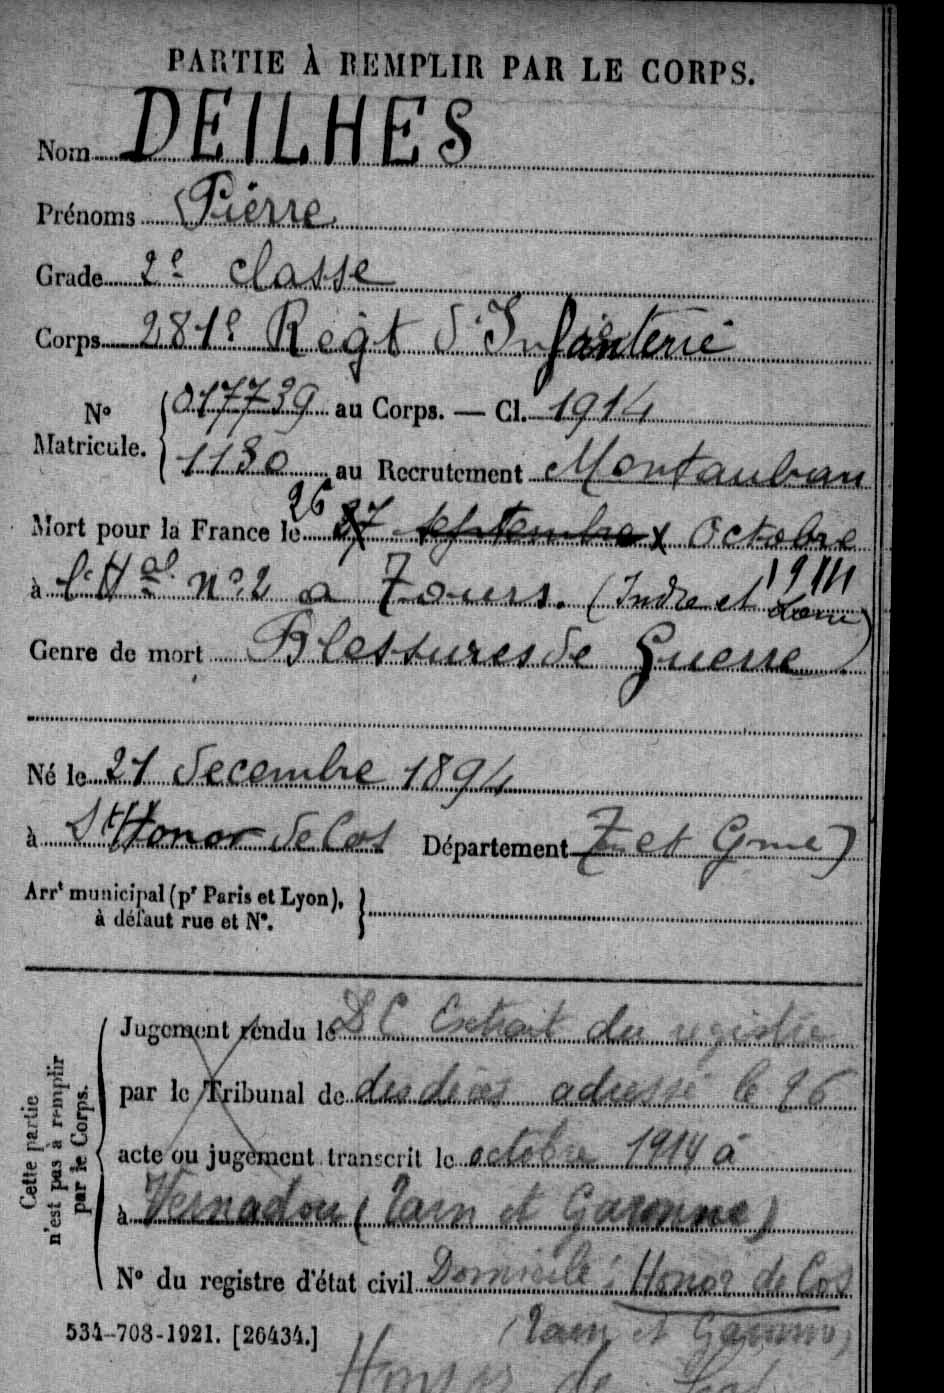 PARTIE À REMPLIR PAR LE CORPS.
Nom DEILHES
Prénoms Pierre
Grade 2e classe
Corps 281e Regt d'Infanterie
No Matricule. 017739 au Corps. — Cl. 1914
1180 au Recrutement Montauban
Mort pour la France le 26 27 septembre Octobre
1914
à l'Hal No 2 a Tours. (Indre et Loire)
Genre de mort Blessures de Guerre
Né le 21 decembre 1894
à St Honor de Cos Département T et Gnne)
Arrt municipal (pr Paris et Lyon),
à défaut rue et No.
Cette partie n'est pas à remplir par le Corps.
Jugement rendu le DC Extrait du registre
par le Tribunal de des décès adressé le 26
acte ou jugement transcrit le octobre 1914 à
à Vernadou (Tarn et Garonne)
No du registre d'état civil Domicile : Honor de Cos
(Tarn et Garonne)
534-708-1921. [26434.]
Honor de Cos